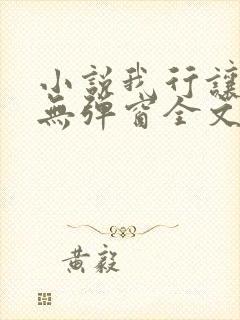 小說我行讓
無彈窗全文
黃毅